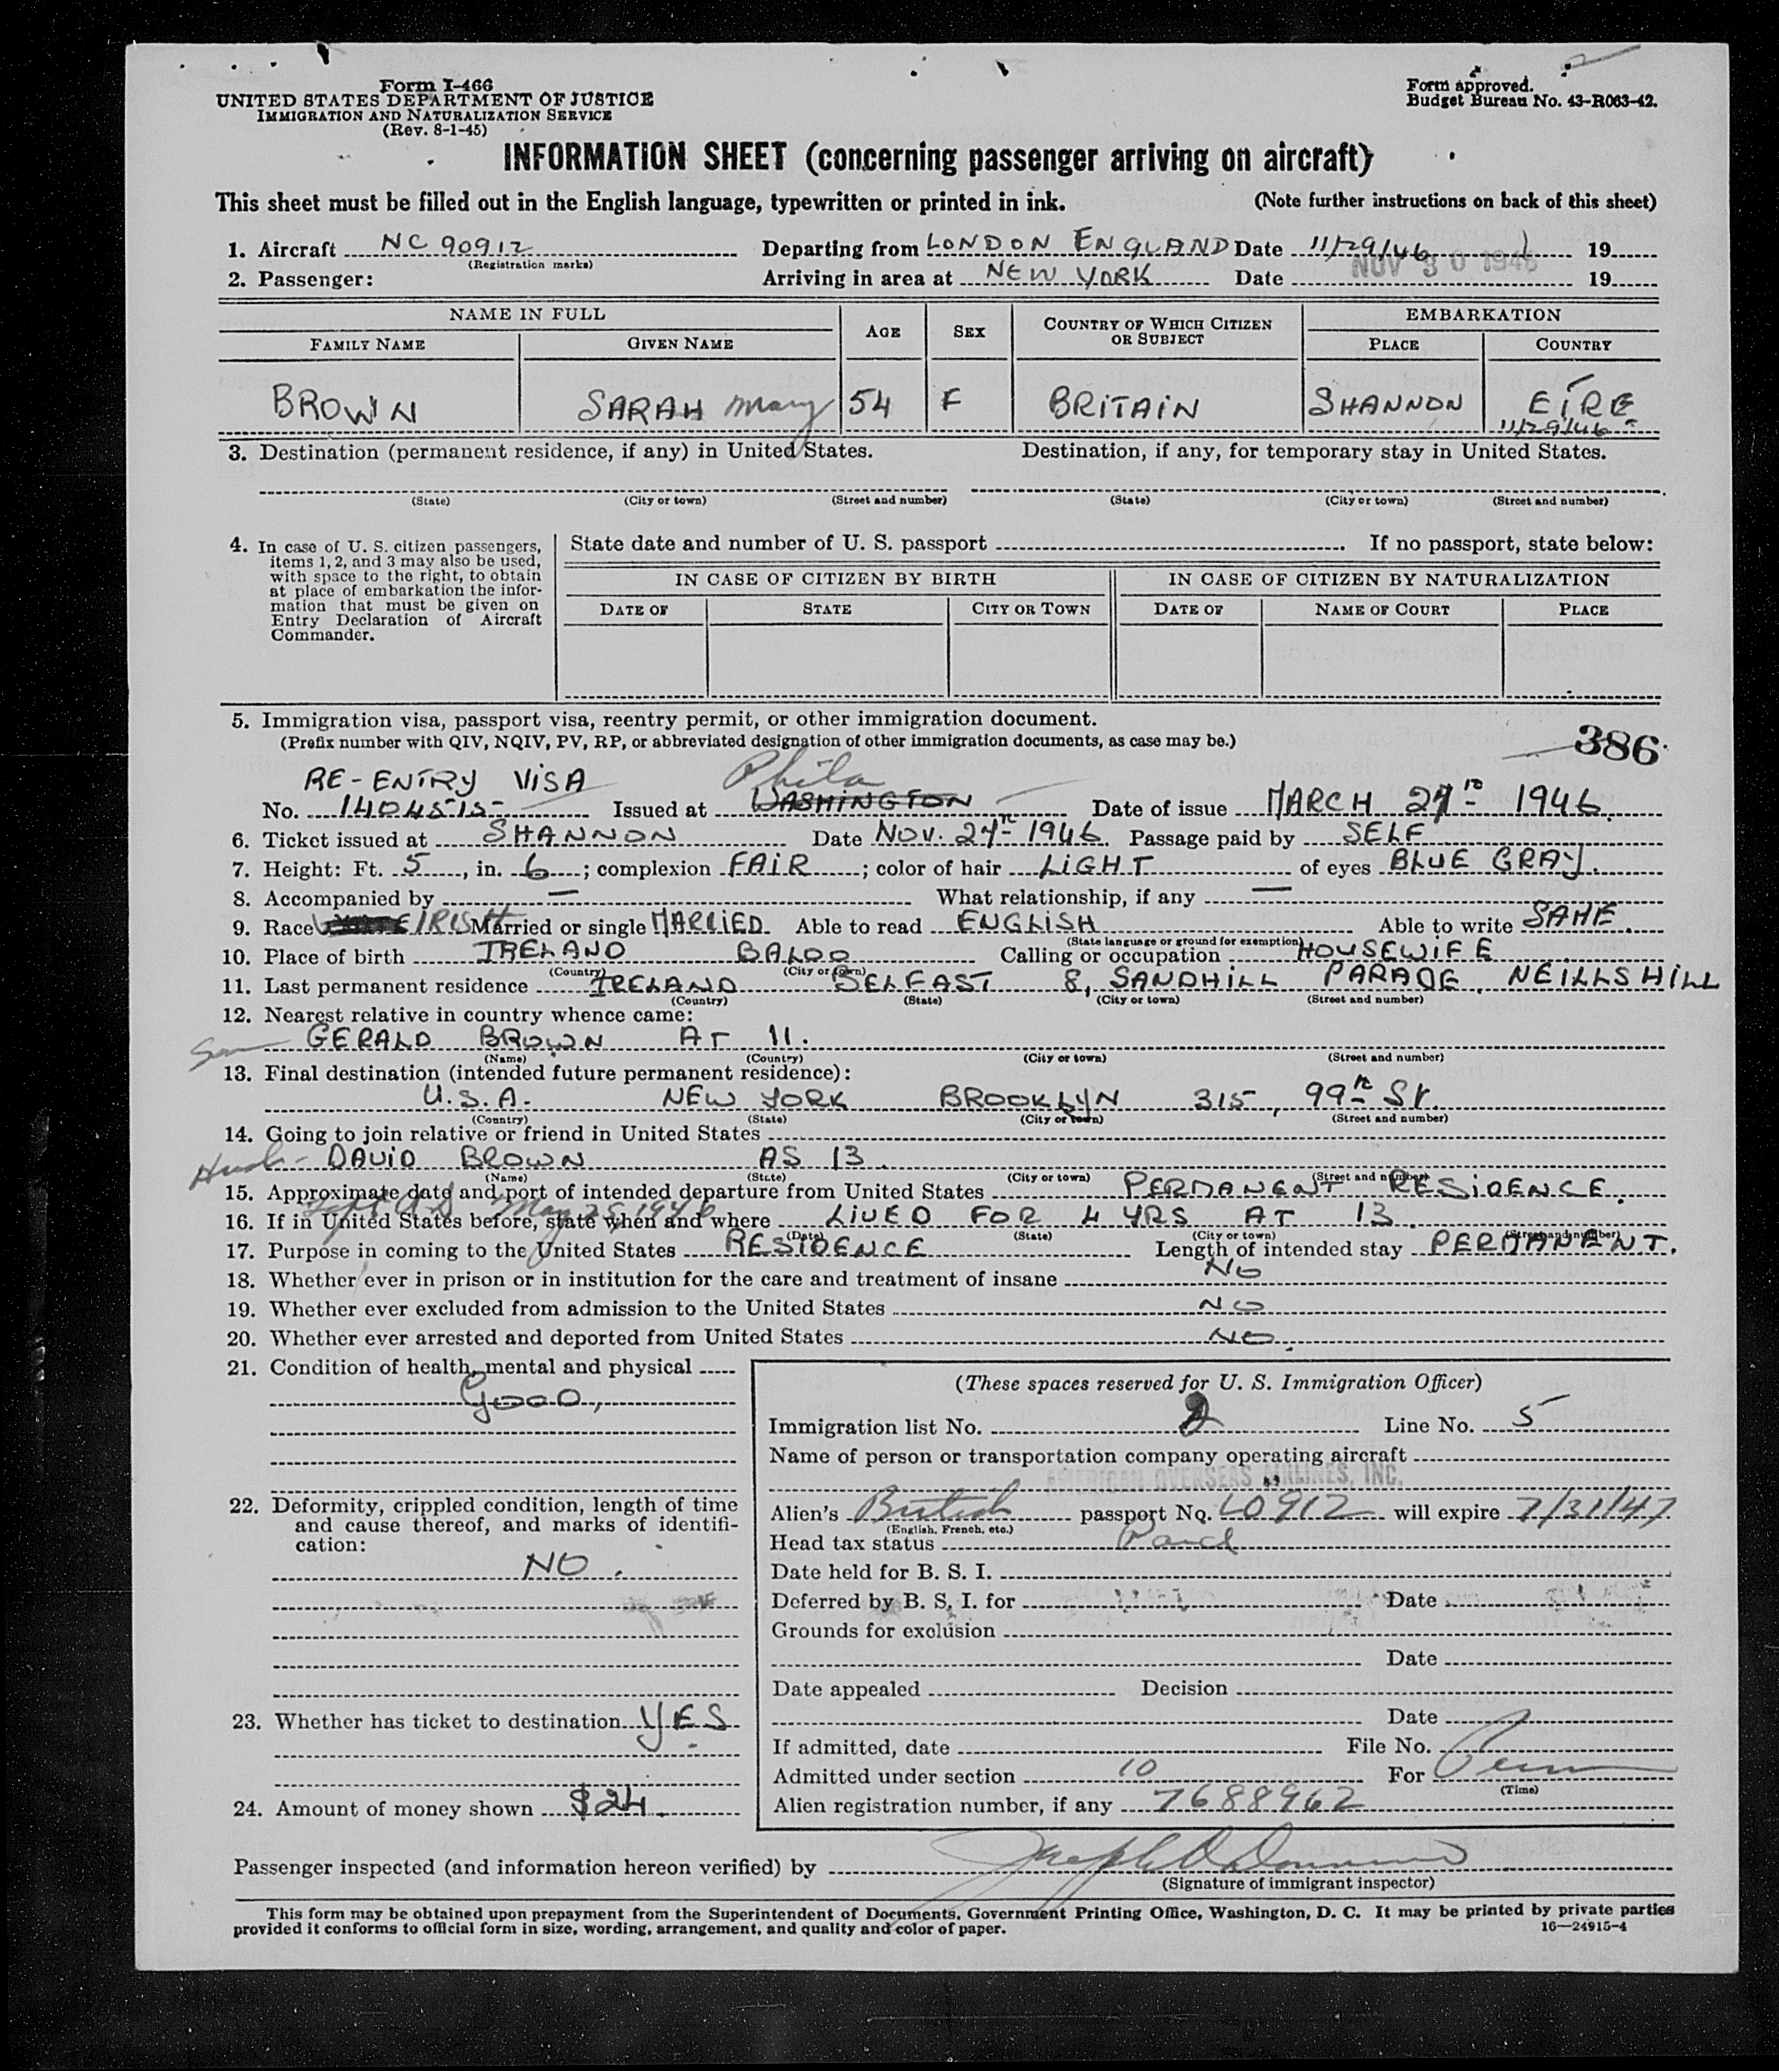 Form I-466
UNITED STATES DEPARTMENT OF JUSTICE
IMMIGRATION AND NATURALIZATION SERVICE
(Rev. 8-1-45)
Form approved.
Budget Bureau No. 43-R063-42.
INFORMATION SHEET (concerning passenger arriving on aircraft)
This sheet must be filled out in the English language, typewritten or printed in ink. (Note further instructions on back of this sheet)
1. Aircraft NC 90912 Departing from LONDON ENGLAND Date 11/29/46 19
(Registration marks)
2. Passenger: Arriving in area at NEW YORK Date NOV 30 1946 19
NAME IN FULL AGE SEX COUNTRY OF WHICH CITIZEN OR SUBJECT EMBARKATION
FAMILY NAME GIVEN NAME PLACE COUNTRY
BROWN SARAH Mary 54 F BRITAIN SHANNON EIRE
11/29/46
3. Destination (permanent residence, if any) in United States. Destination, if any, for temporary stay in United States.
(State) (City or town) (Street and number) (State) (City or town) (Street and number)
4. In case of U. S. citizen passengers, items 1, 2, and 3 may also be used, with space to the right, to obtain at place of embarkation the information that must be given on Entry Declaration of Aircraft Commander.
State date and number of U. S. passport If no passport, state below:
IN CASE OF CITIZEN BY BIRTH IN CASE OF CITIZEN BY NATURALIZATION
DATE OF STATE CITY OR TOWN DATE OF NAME OF COURT PLACE
5. Immigration visa, passport visa, reentry permit, or other immigration document.
(Prefix number with QIV, NQIV, PV, RP, or abbreviated designation of other immigration documents, as case may be.)
386
RE-ENTRY VISA Phila
No. 1404515 Issued at WASHINGTON Date of issue MARCH 27th 1946
6. Ticket issued at SHANNON Date NOV. 27th 1946. Passage paid by SELF
7. Height: Ft. 5, in. 6; complexion FAIR; color of hair LIGHT of eyes BLUE GRAY.
8. Accompanied by — What relationship, if any —
9. Race IRISH Married or single MARRIED Able to read ENGLISH Able to write SAME.
(State language or ground for exemption)
10. Place of birth IRELAND BALDO Calling or occupation HOUSEWIFE
(Country) (City or town)
11. Last permanent residence IRELAND BELFAST 8, SANDHILL PARADE, NEILLSHILL
(Country) (State) (City or town) (Street and number)
12. Nearest relative in country whence came:
Son GERALD BROWN AT 11.
(Name) (Country) (City or town) (Street and number)
13. Final destination (intended future permanent residence):
U.S.A. NEW YORK BROOKLYN 315, 99th St.
(Country) (State) (City or town) (Street and number)
14. Going to join relative or friend in United States
Husb- DAVID BROWN AS 13.
(Name) (State) (City or town) (Street and number)
15. Approximate date and port of intended departure from United States PERMANENT RESIDENCE.
May 25, 1946
16. If in United States before, state when and where LIVED FOR 4 YRS AT 13.
(Date) (State) (City or town) (Street and number)
17. Purpose in coming to the United States RESIDENCE Length of intended stay PERMANENT.
18. Whether ever in prison or in institution for the care and treatment of insane NO
19. Whether ever excluded from admission to the United States NO
20. Whether ever arrested and deported from United States NO.
21. Condition of health, mental and physical
GOOD,
22. Deformity, crippled condition, length of time and cause thereof, and marks of identification:
NO.
23. Whether has ticket to destination YES
24. Amount of money shown $24.
(These spaces reserved for U. S. Immigration Officer)
Immigration list No. 2 Line No. 5
Name of person or transportation company operating aircraft
AMERICAN OVERSEAS AIRLINES, INC.
Alien's British passport No. L0912 will expire 7/31/47
(English, French, etc.)
Head tax status Paid
Date held for B. S. I.
Deferred by B. S. I. for Date
Grounds for exclusion
Date
Date appealed Decision
Date
If admitted, date File No.
Admitted under section 10 For Perm
(Time)
Alien registration number, if any 7688962
Passenger inspected (and information hereon verified) by
(Signature of immigrant inspector)
This form may be obtained upon prepayment from the Superintendent of Documents, Government Printing Office, Washington, D. C. It may be printed by private parties
provided it conforms to official form in size, wording, arrangement, and quality and color of paper. 16—24915-4